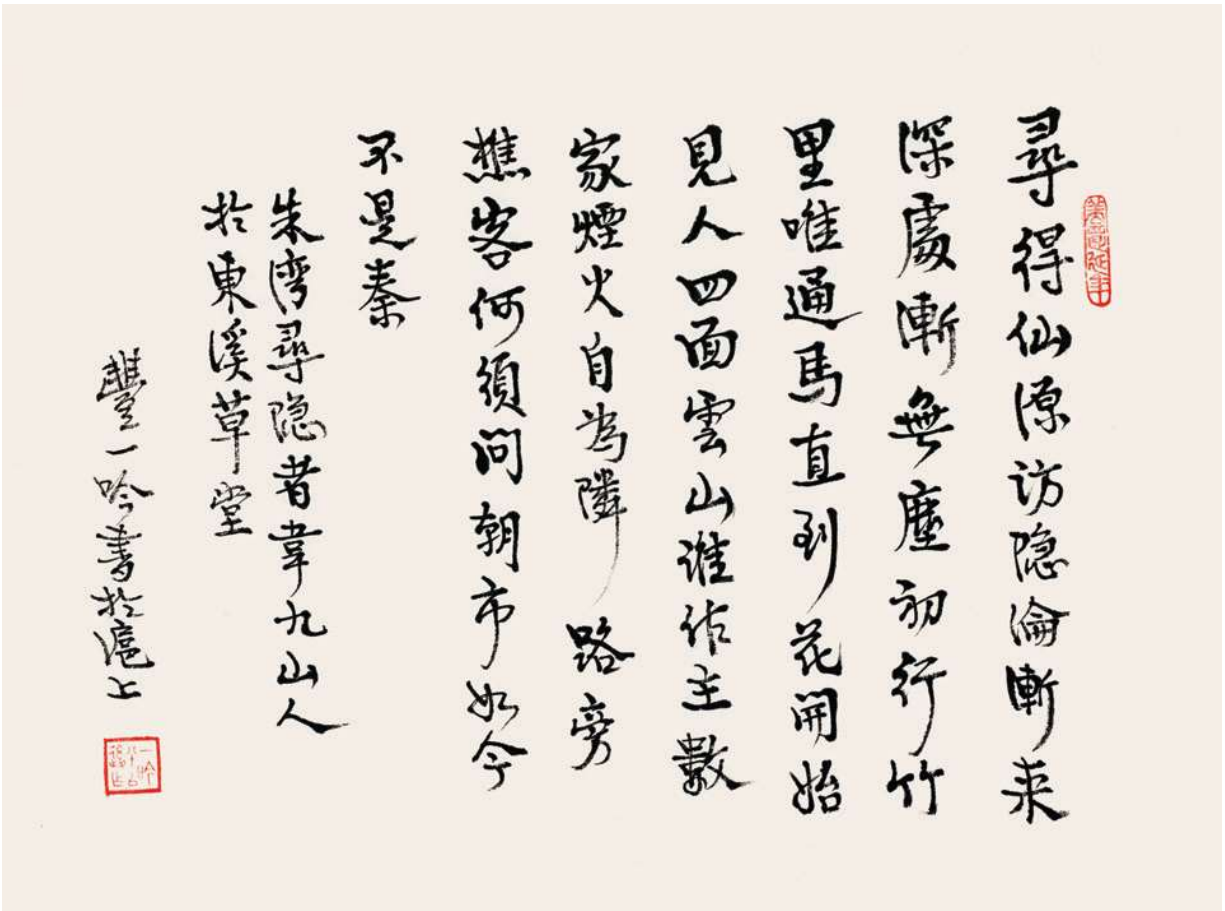 美意延年
尋得仙源访隐淪漸来
深處漸無塵初行竹
里唯通馬直到花開始
見人四面雲山谁作主數
家煙火自為隣路旁
樵客何須问朝市如今
不是秦
朱湾尋隐者韋九山人
於東溪草堂
豐一吟書於滬上